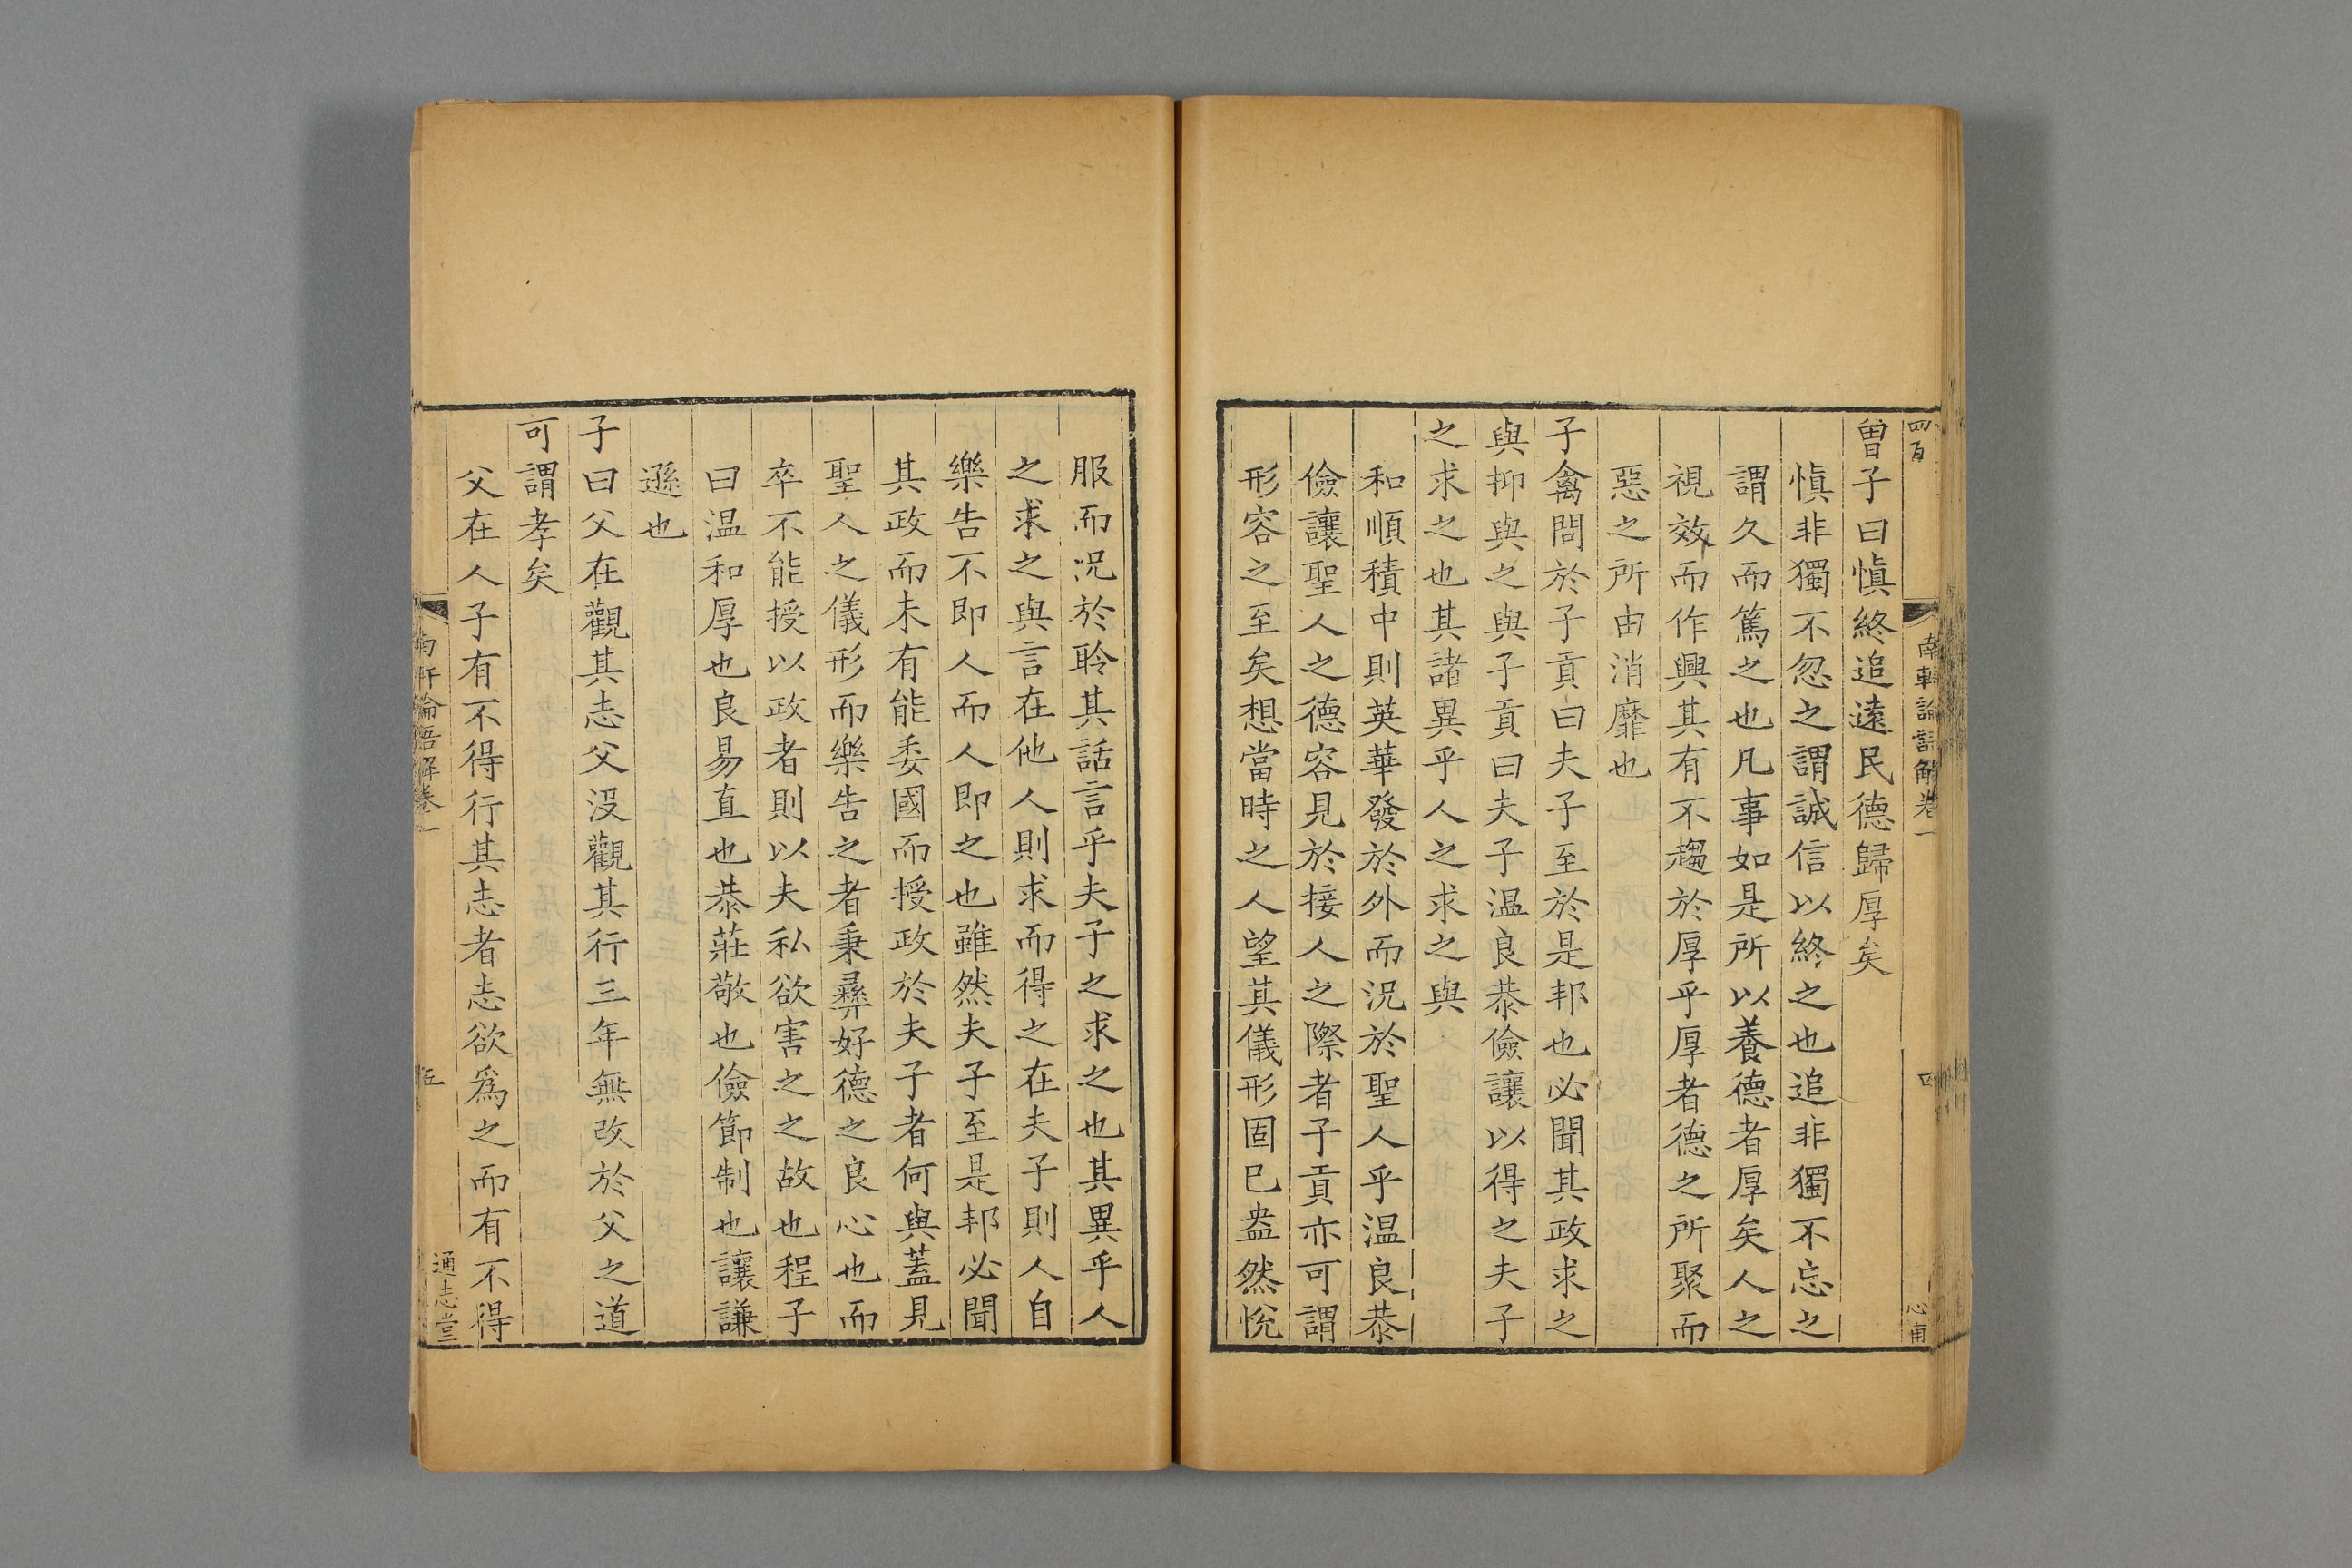 四百
南軒論語解卷一
四
心甫
曾子曰愼終追遠民德歸厚矣
愼非獨不忽之謂誠信以終之也追非獨不忘之
謂久而篤之也凡事如是所以養德者厚矣人之
視效而作興其有不趨於厚乎厚者德之所聚而
惡之所由消靡也
子禽問於子貢曰夫子至於是邦也必聞其政求之
與抑與之與子貢曰夫子温良恭儉讓以得之夫子
之求之也其諸異乎人之求之與
和順積中則英華發於外而況於聖人乎温良恭
儉讓聖人之德容見於接人之際者子貢亦可謂
形容之至矣想當時之人望其儀形固已盎然悅
服而況於聆其話言乎夫子之求之也其異乎人
之求之與言在他人則求而得之在夫子則人自
樂告不即人而人即之也雖然夫子至是邦必聞
其政而未有能委國而授政於夫子者何與蓋見
聖人之儀形而樂告之者秉彝好德之良心也而
卒不能授以政者則以夫私欲害之之故也程子
曰温和厚也良易直也恭莊敬也儉節制也讓謙
遜也
子曰父在觀其志父沒觀其行三年無改於父之道
可謂孝矣
父在人子有不得行其志者志欲爲之而有不得
南軒論語解卷一
五
通志堂